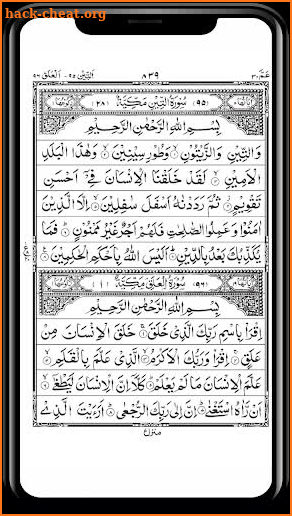 hack-cheat.org
عَمَّ ٣٠ ٨٣٩ اَلتِّيْن ٩٥ - اَلْعَلَق ٩٦
(٩٥) سُوْرَةُ التِّيْنِ مَكِّيَّةٌ (٢٨)
بِسْمِ اللّٰهِ الرَّحْمٰنِ الرَّحِيْمِ
وَالتِّيْنِ وَالزَّيْتُوْنِ ۝ وَطُوْرِ سِيْنِيْنَ ۝ وَهٰذَا الْبَلَدِ
الْاَمِيْنِ ۝ لَقَدْ خَلَقْنَا الْاِنْسَانَ فِيْٓ اَحْسَنِ
تَقْوِيْمٍ ۝ ثُمَّ رَدَدْنٰهُ اَسْفَلَ سٰفِلِيْنَ ۝ اِلَّا الَّذِيْنَ
اٰمَنُوْا وَعَمِلُوا الصّٰلِحٰتِ فَلَهُمْ اَجْرٌ غَيْرُ مَمْنُوْنٍ ۝ فَمَا
يُكَذِّبُكَ بَعْدُ بِالدِّيْنِ ۝ اَلَيْسَ اللّٰهُ بِاَحْكَمِ الْحٰكِمِيْنَ ۝
(٩٦) سُوْرَةُ الْعَلَقِ مَكِّيَّةٌ (١)
بِسْمِ اللّٰهِ الرَّحْمٰنِ الرَّحِيْمِ
اِقْرَاْ بِاسْمِ رَبِّكَ الَّذِيْ خَلَقَ ۝ خَلَقَ الْاِنْسَانَ مِنْ
عَلَقٍ ۝ اِقْرَاْ وَرَبُّكَ الْاَكْرَمُ ۝ الَّذِيْ عَلَّمَ بِالْقَلَمِ ۝
عَلَّمَ الْاِنْسَانَ مَا لَمْ يَعْلَمْ ۝ كَلَّآ اِنَّ الْاِنْسَانَ لَيَطْغٰٓى ۝
اَنْ رَّاٰهُ اسْتَغْنٰى ۝ اِنَّ اِلٰى رَبِّكَ الرُّجْعٰى ۝ اَرَءَيْتَ الَّذِيْ
منزل
hack-cheat.org